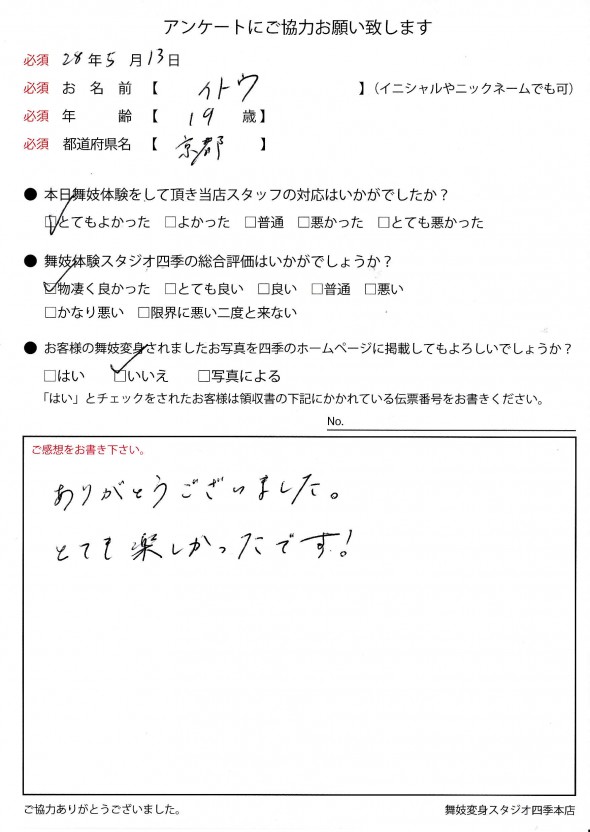 アンケートにご協力お願い致します
必須 28年5月13日
必須 お名前【 イトウ 】（イニシャルやニックネームでも可）
必須 年齢【 19 歳】
必須 都道府県名【 京都 】
● 本日舞妓体験をして頂き当店スタッフの対応はいかがでしたか？
☑とてもよかった □よかった □普通 □悪かった □とても悪かった
● 舞妓体験スタジオ四季の総合評価はいかがでしょうか？
☑物凄く良かった □とても良い □良い □普通 □悪い
□かなり悪い □限界に悪い二度と来ない
● お客様の舞妓変身されましたお写真を四季のホームページに掲載してもよろしいでしょうか？
□はい ☑いいえ □写真による
「はい」とチェックをされたお客様は領収書の下記にかかれている伝票番号をお書きください。
No.
ご感想をお書き下さい。
ありがとうございました。
とても楽しかったです！
ご協力ありがとうございました。
舞妓変身スタジオ四季本店